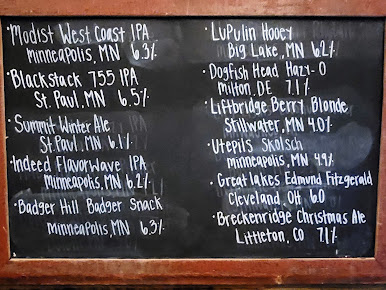 • Modist West Coast IPA
Minneapolis, MN 6.3%
• Blackstack 755 IPA
St. Paul, MN 6.5%
• Summit Winter Ale
St. Paul, MN 6.1%
• Indeed Flavorwave IPA
Minneapolis, MN 6.2%
• Badger Hill Badger Snack
Minneapolis, MN 6.3%
• Lupulin Hooey
Big Lake, MN 6.2%
• Dogfish Head Hazy-O
Milton, DE 7.1%
• Liftbridge Berry Blonde
Stillwater, MN 4.0%
• Utepils Skolsch
Minneapolis, MN 4.9%
• Great Lakes Edmund Fitzgerald
Cleveland, OH 6.0
• Breckenridge Christmas Ale
Littleton, CO 7.1%